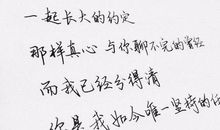 一起长大的约定
那样真心 与你聊不完的曾经
而我已经分得清
你是我如今唯一坚持的